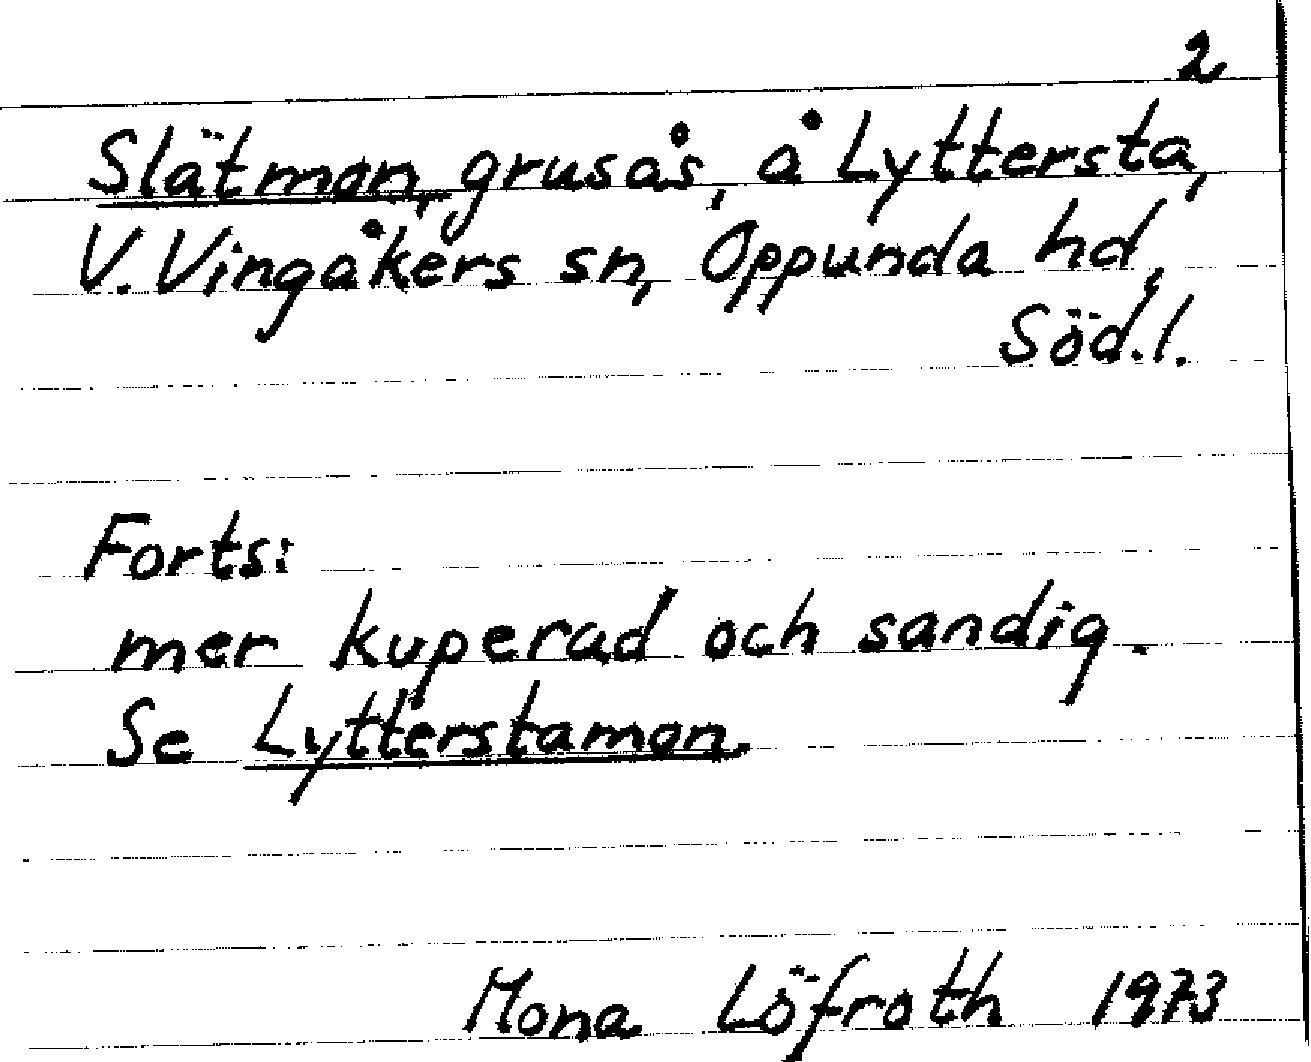 2
Slätmon, grusås, å Lyttersta,
V. Vingåkers sn, Oppunda hd,
Söd.l.
Forts:
mer kuperad och sandig.
Se Lytterstamon.
Mona Löfroth 1973